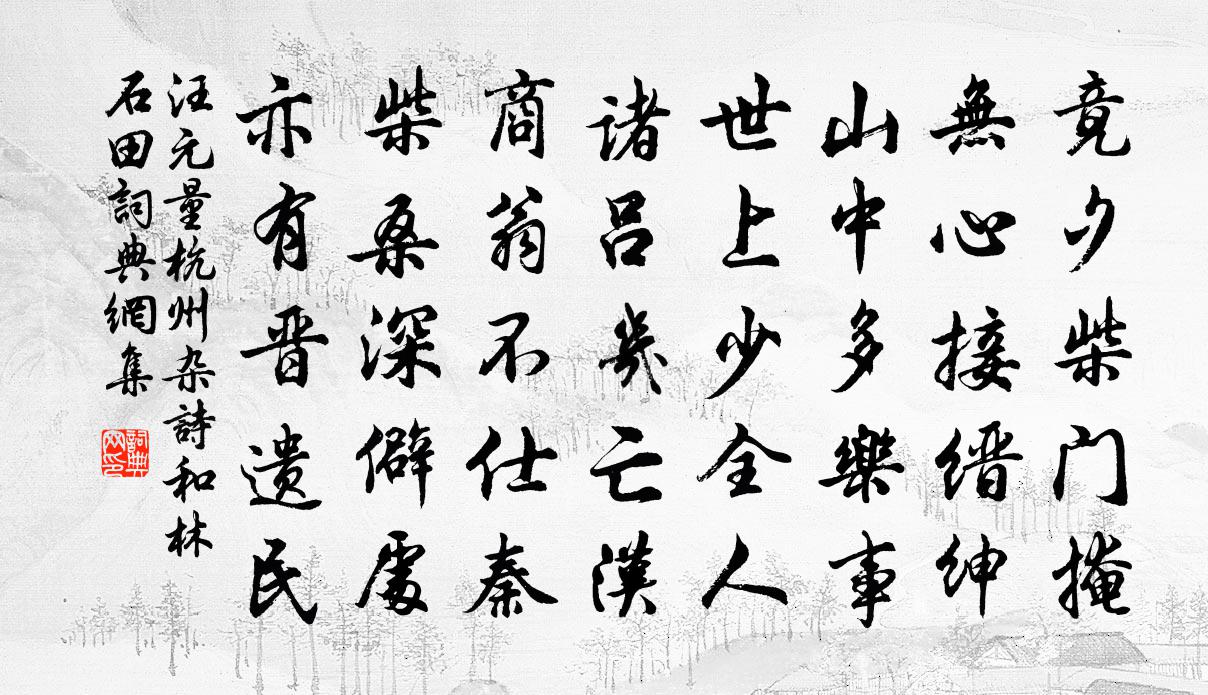 竟夕柴门掩
無心接缙绅
山中多樂事
世上少全人
诸吕幾亡漢
商翁不仕秦
柴桑深僻處
亦有晋遗民
汪元量杭州杂詩和林
石田詞典網集
詞典网印